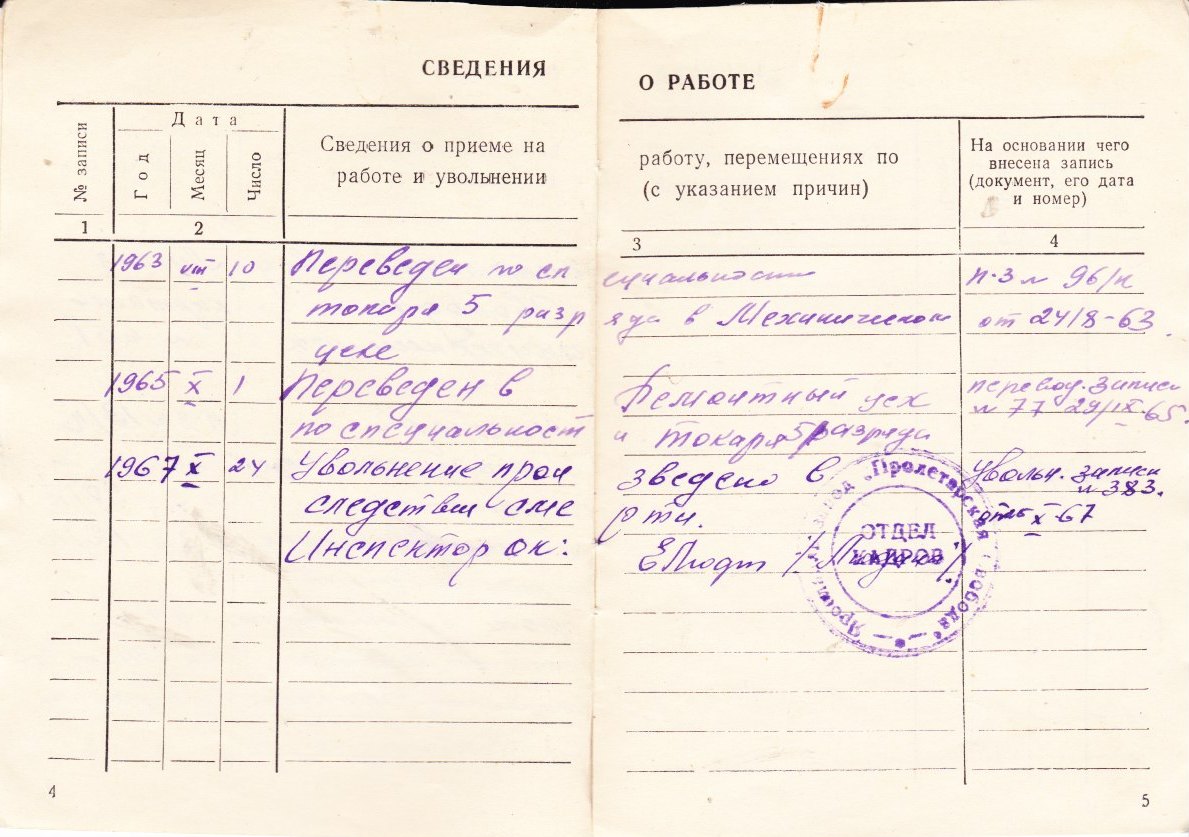 СВЕДЕНИЯ
О РАБОТЕ
№ записи
Дата
Год
Месяц
Число
Сведения о приеме на
работе и увольнении
работу, перемещениях по
(с указанием причин)
На основании чего
внесена запись
(документ, его дата
и номер)
1
2
3
4
1963 VIII 10 Переведен по сп
ециальности
токаря 5 разр
яда в Механическом
цехе
п-з № 96/к
от 24/8-63.
1965 X 1 Переведен в
Ремонтный цех
по специальност
и токаря 5 разряда
перевод. записка
№ 77 29/IX-65.
1967 X 24 Увольнение прои
зведено в
следствии сме
рти.
Инспектор ок:
увольн. записка
№ 383.
X-67
завод "Пролетарская свобода"
ОТДЕЛ
КАДРОВ
4
5